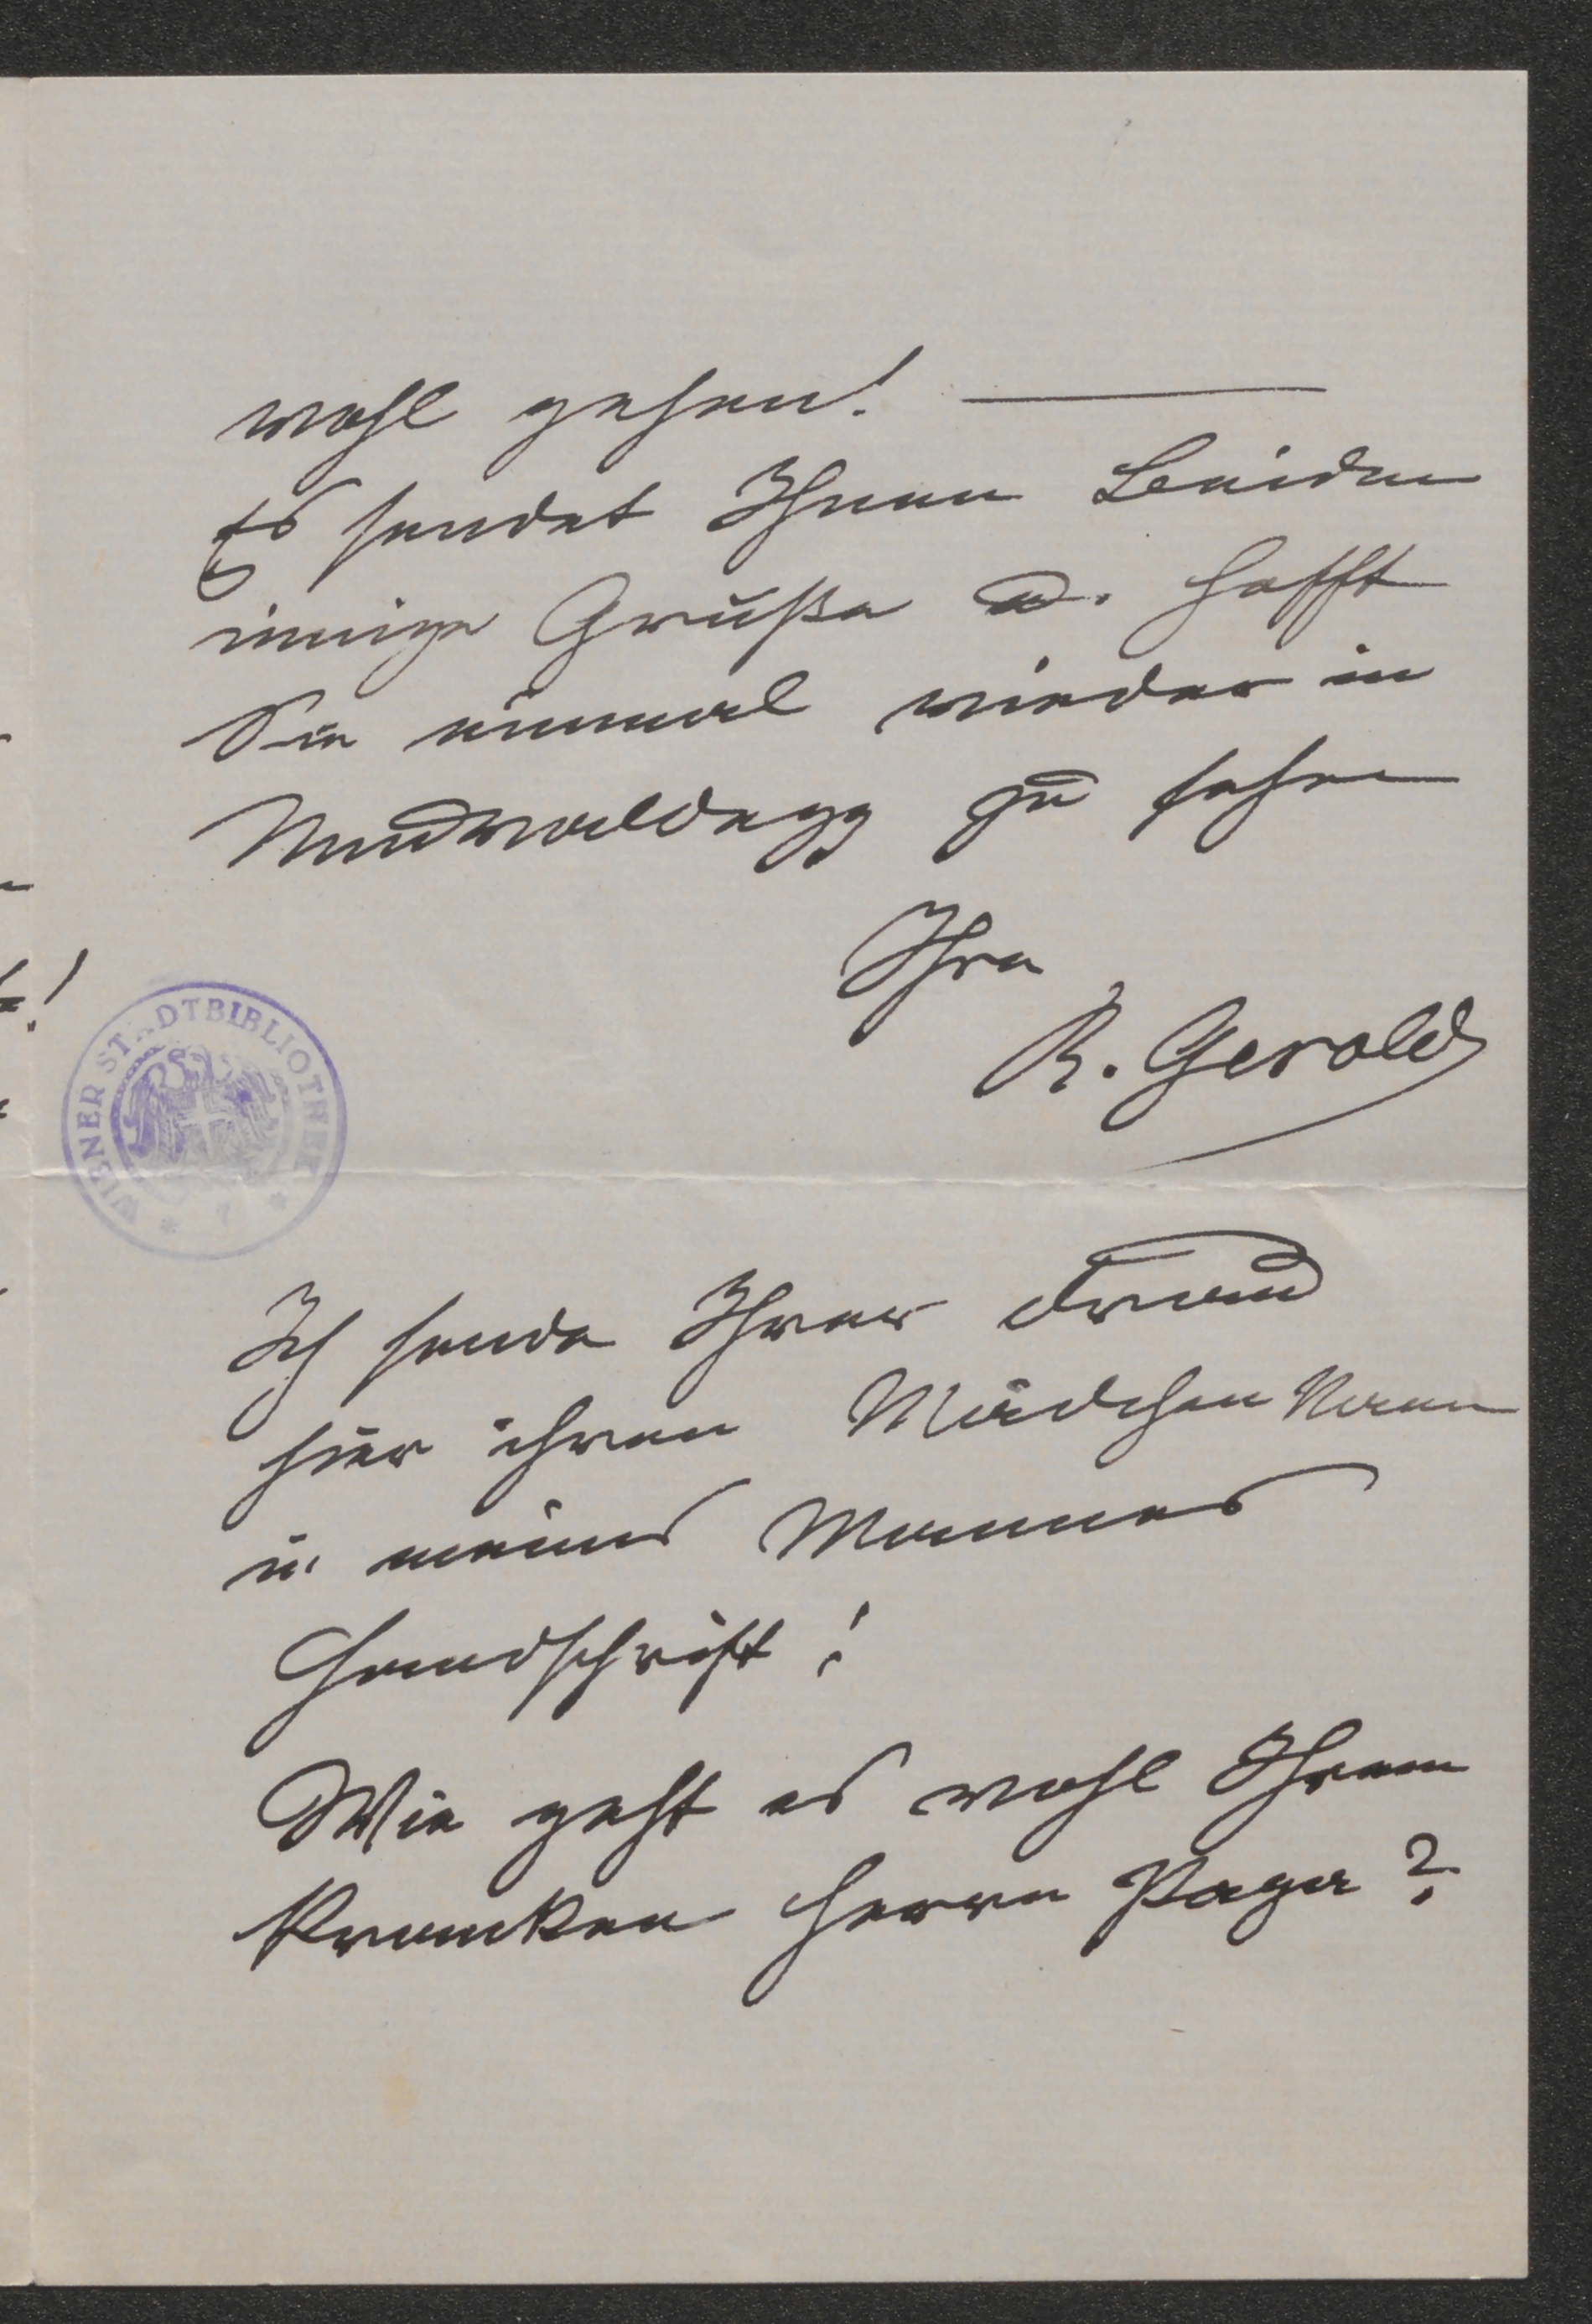 wohl gehen! —
Es sendet Ihnen Beiden
innige Grüße u. hofft
Sie einmal wieder in
Neuwaldegg zu sehen
Ihre
R. Gerold
WIENER STADTBIBLIOTHEK
Ich sende Ihrer Frau
hier ihren Mädchen Namen
in meines Mannes
Handschrift!
Wie geht es wohl Ihrem
kranken Herrn Papa?